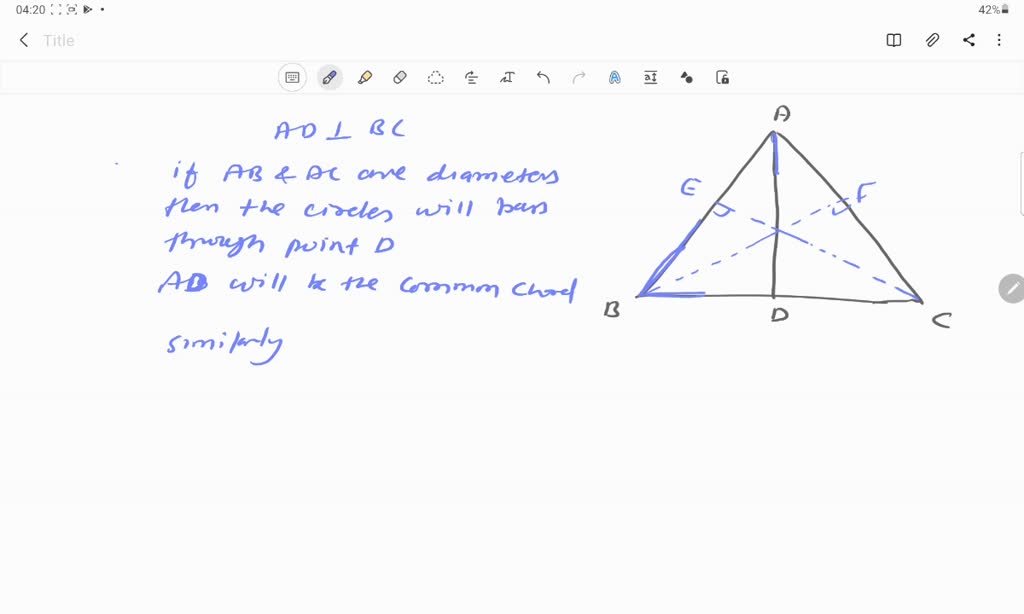 04:20
42%
Title
AD ⊥ BC
if AB & AC are diameters
then the circles will pass
through point D
AD will be the common chord
similarly
A
E
F
B
D
C